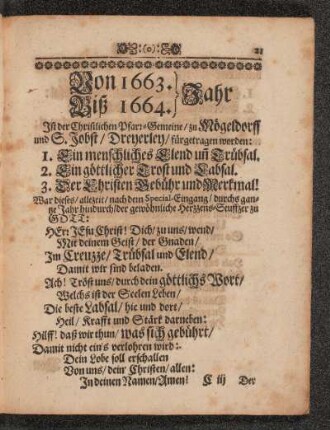 :(o):
21
Von 1663.
Biß 1664. } Jahr
Ist der Christlichen Pfar=Gemeine/ zu Mögeldorff
und S. Jobst/ Dreyerley/ fürgetragen worden:
1. Ein menschliches Elend uñ Trübsal.
2. Ein göttlicher Trost und Labsal.
3. Der Christen Gebühr und Merkmal!
War dieses/ allezeit/ nach dem Special-Eingang/ durchs gan-
ze Jahr hindurch/ der gewöhnliche Herzens-Seuffzer zu
GOTT:
HErr JEsu Christ! Dich/ zu uns/ wend/
Mit deinem Geist/ der Gnaden/
Im Creutze/ Trübsal und Elend/
Damit wir sind beladen.
Ach! Tröst uns/ durch dein göttlichs Wort/
Welchs ist der Seelen Leben/
Die beste Labsal/ hie und dort/
Heil/ Krafft und Stärk darneben:
Hilff! daß wir thun/ was sich gebührt/
Damit nicht ein's verlohren wird:-
Dein Lobe soll erschallen
Von uns/ dein Christen/ allen:
In deinen Namen/ Amen! C iij Der